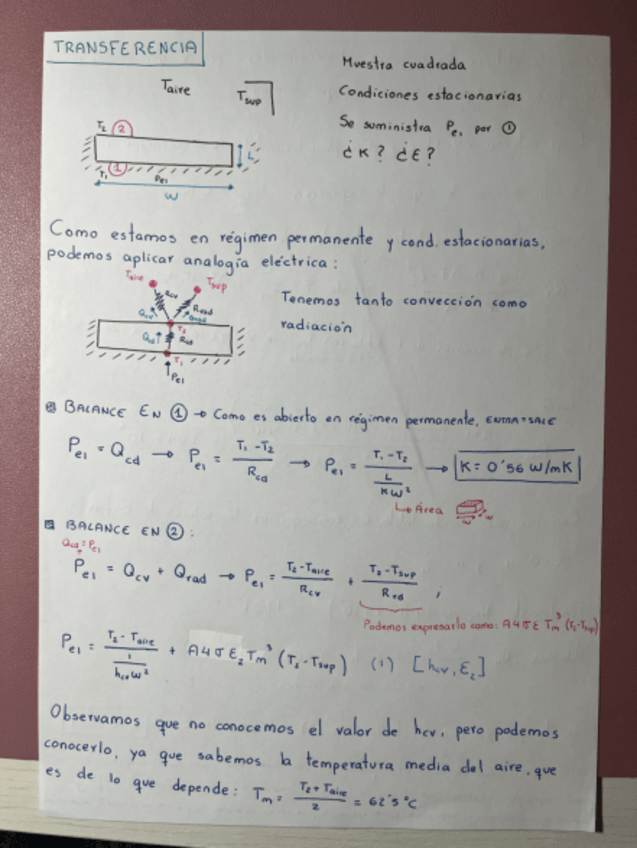 TRANSFERENCIA
Taire Tsup
T2 2
L
T1 1 Pe1
W
Muestra cuadrada
Condiciones estacionarias
Se suministra Pe1 por ①
¿K? ¿ε?
Como estamos en régimen permanente y cond. estacionarias,
podemos aplicar analogía eléctrica:
Taire Tsup
Rcv Rrad
Qcv Qrad
T2
Qcd Rcd
T1
Pe1
Tenemos tanto convección como
radiación
BALANCE EN ① → Como es abierto en régimen permanente, ENTRA=SALE
Pe1 = Qcd → Pe1 = (T1 - T2)/Rcd → Pe1 = (T1 - T2)/(L/(KW²)) → K = 0'56 W/mK
↳ Área W W
BALANCE EN ②:
Qcd = Pe1
Pe1 = Qcv + Qrad → Pe1 = (T2 - Taire)/Rcv + (T2 - Tsup)/Rrad ;
Podemos expresarlo como: A4σε Tm³ (T2-Tsup)
Pe1 = (T2 - Taire)/(1/(hcv W²)) + A4σε2 Tm³ (T2 - Tsup) (1) [hcv, ε2]
Observamos que no conocemos el valor de hcv, pero podemos
conocerlo, ya que sabemos la temperatura media del aire, que
es de lo que depende: Tm = (T2 + Taire)/2 = 62'5 °C